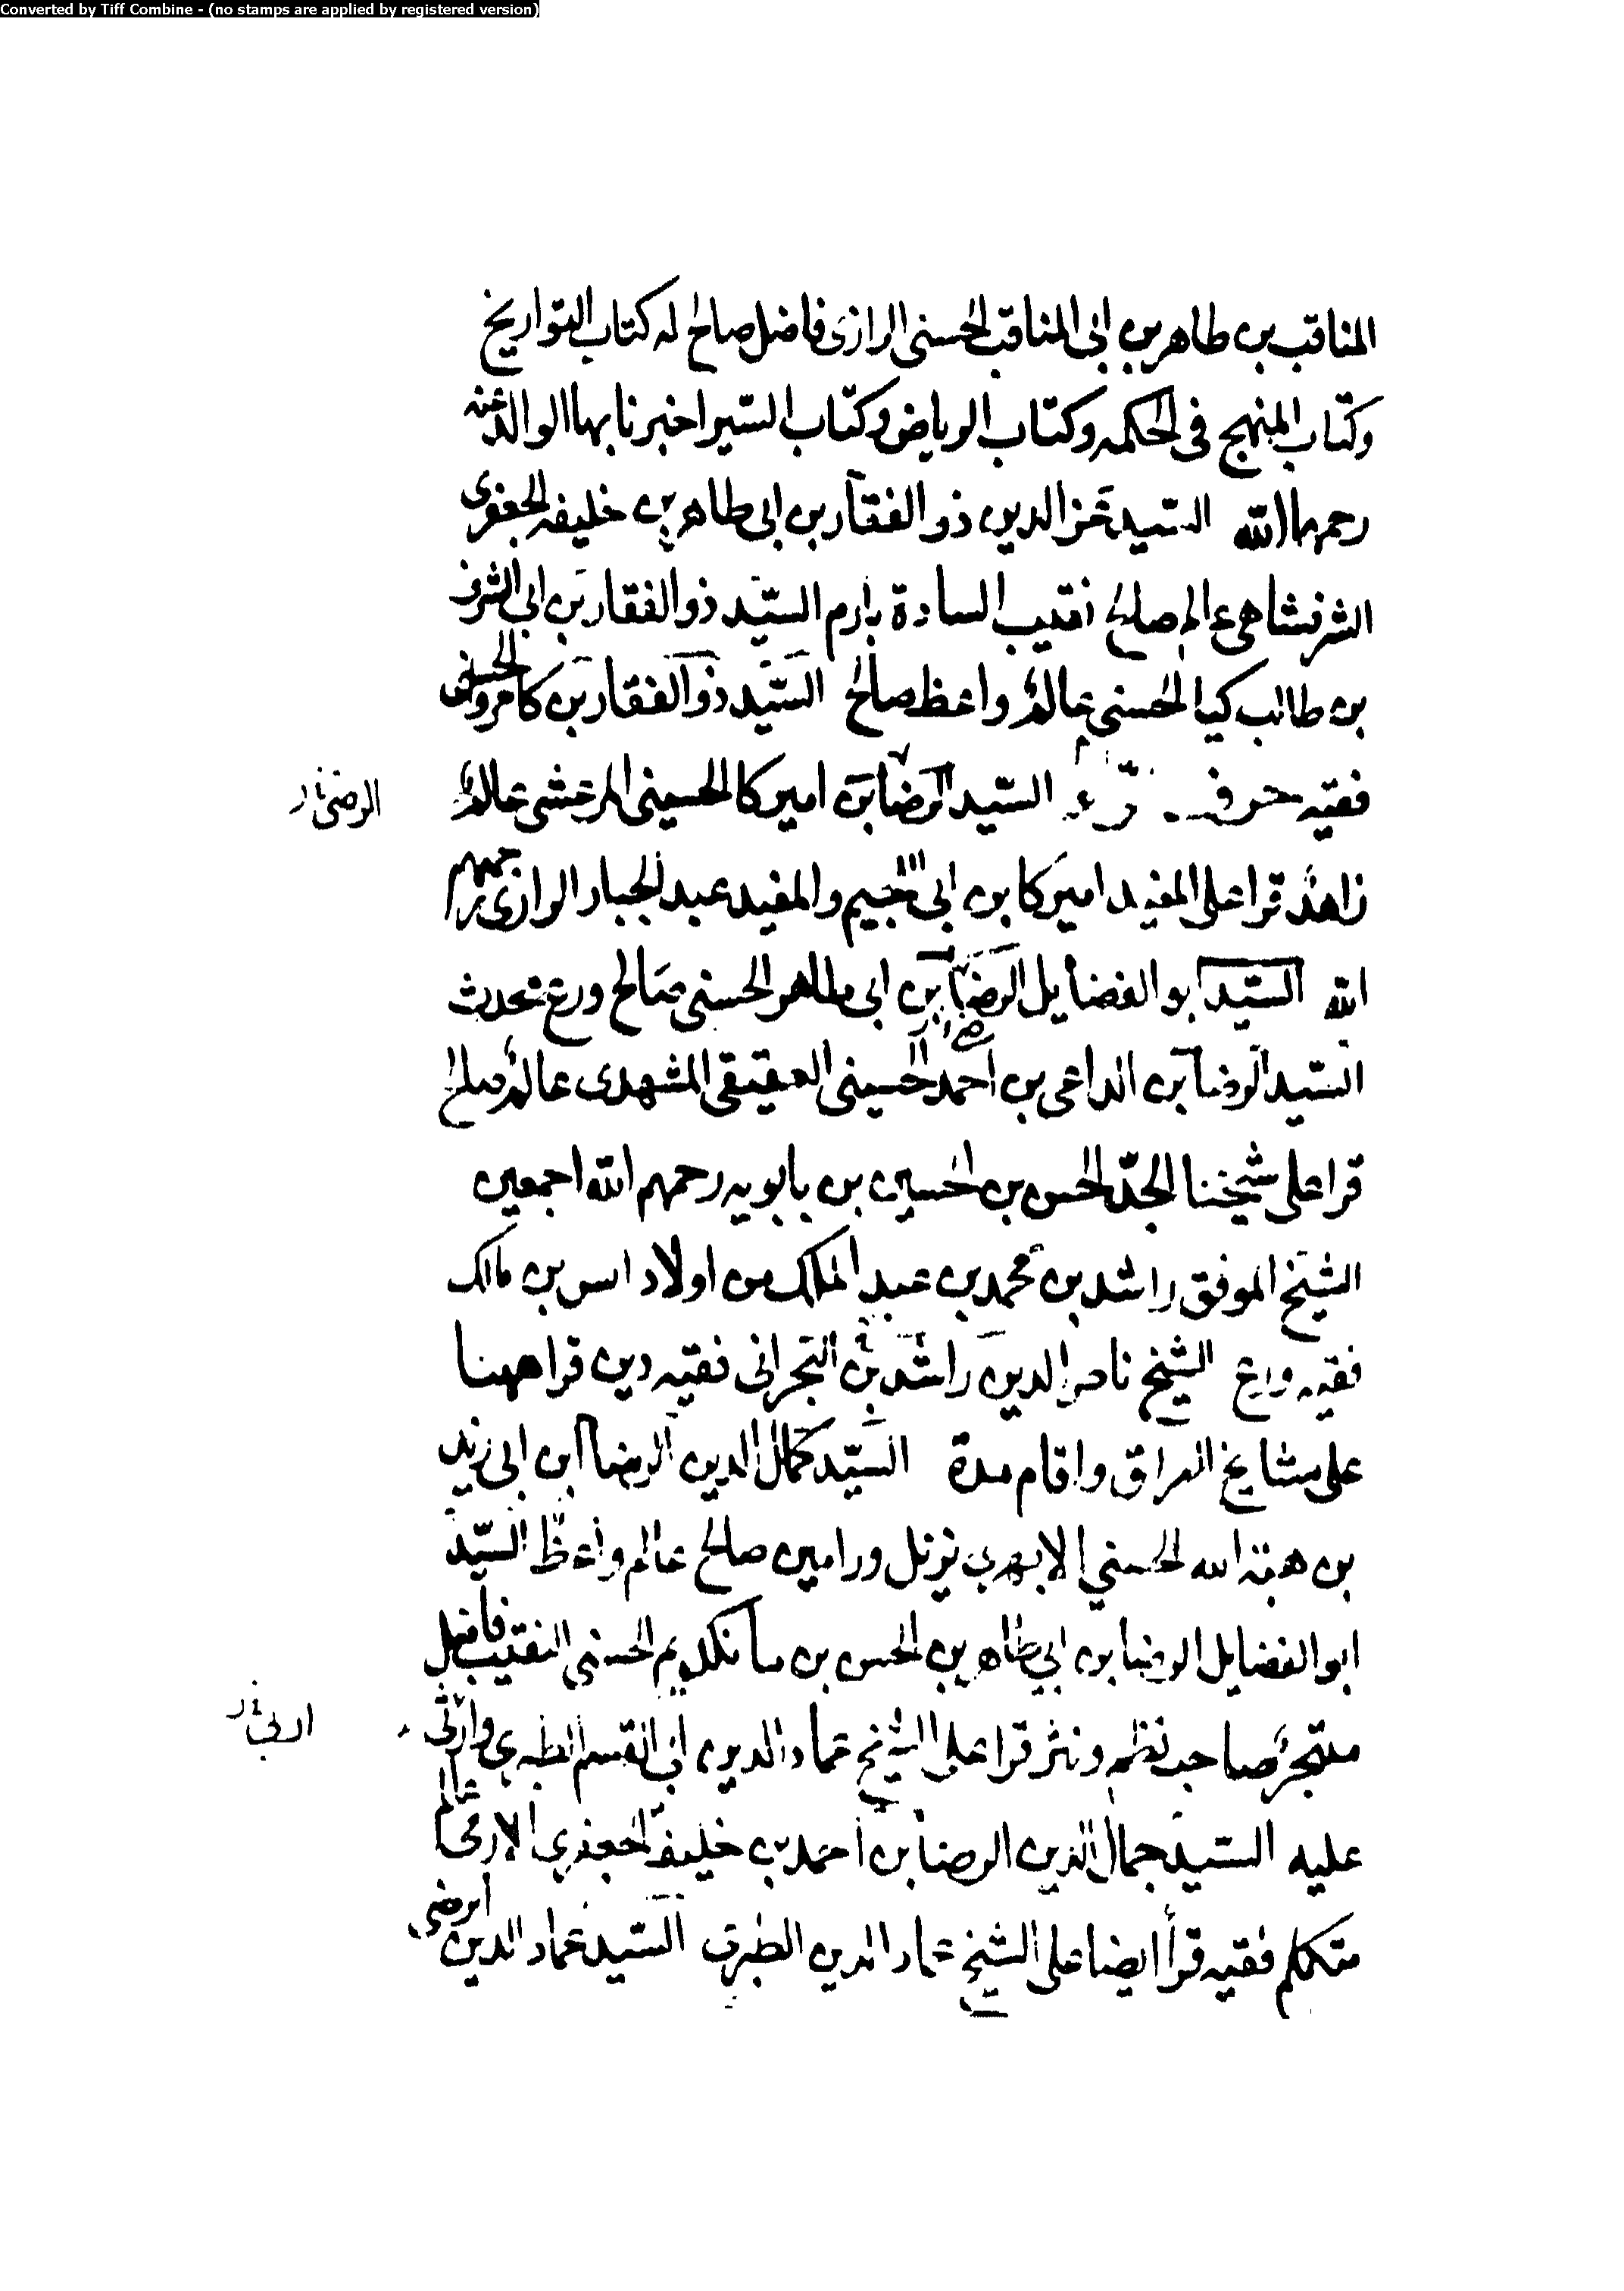 Converted by Tiff Combine - (no stamps are applied by registered version)
المناقب بن طاهر بن ابى المناقب الحسنى الرازى فاضل صالح له كتاب التواريخ
وكتاب المنهج فى الحكمه وكتاب الرياض وكتاب السير اخبرنا بها الوالد عنه
رحمهما الله السيد عز الدين ذو الفقار بن ابى طاهر بن خليفه الجعفرى
الشرفشاهى عالم صالح نقيب السادة بارم السيد ذو الفقار بن ابى الشرف
بن طالب كيا الحسنى عالم واعظ صالح السيد ذو الفقار بن كامروا الحسنى
فقيه حرف السيد الرضا بن اميركا الحسينى المرعشى عالم
الرضى
زاهد قرا على المفيد اميركا بن ابى اللجيم والمفيد عبد الجبار الرازى رحمهم
الله السيد ابو الفضايل الرضا بن ابى طاهر الحسنى صالح ورع محدث
السيد الرضا بن الداعى بن احمد الحسينى العقيقى المشهدى عالم صالح
قرا على شيخنا الجد الحسن بن الحسين بن بابويه رحمهم الله اجمعين
الشيخ الموفق راشد بن محمد بن عبد الملك من اولاد انس بن مالك
فقيه ورع الشيخ ناصر الدين راشد بن البحرانى فقيه دين قرا ههنا
على مشايخ العراق واقام مدة السيد كمال الدين الرضا ابن ابى زيد
بن هبة الله الحسني الابهري نزيل ورامين صالح عالم واعظ السيد
ابو الفضايل الرضا بن ابي طاهر بن الحسن بن مانكديم الحسنى النقيب فاضل
متبحر صاحب نظم ونثر قرا على الشيخ عماد الدين ابى القسم الطبري وارثى
عليه السيد جمال الدين الرضا بن احمد بن خليفة الجعفري الارمى عالم
متكلم فقيه قرأ ايضا على الشيخ عماد الدين الطبرى السيد عماد الدين ابو رضى